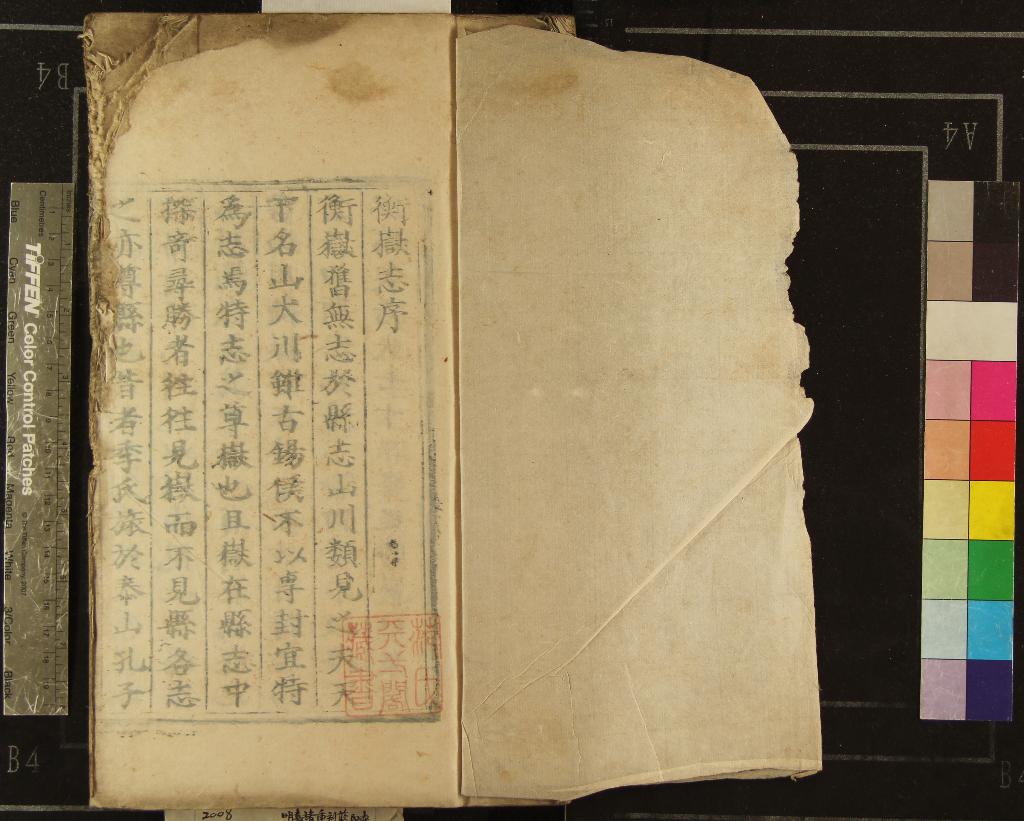 衡嶽志序
衡嶽舊無志於縣志山川類見之夫天
下名山大川雖古錫侯不以專封宜特
為志焉特志之尊嶽也且嶽在縣志中
探奇尋勝者往往見嶽而不見縣各志
之亦尊縣也昔者季氏旅於泰山孔子
天一閣
藏書
B4
A4
B4
TIFFEN Color Control Patches
© The Tiffen Company, 2007
Centimetres
Inches
Blue
Cyan
Green
Yellow
Red
Magenta
White
3/Color
Black
2008